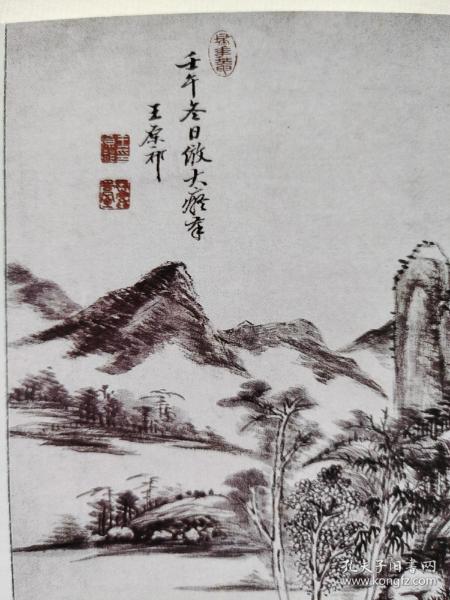 壬午冬日倣大癡筆
王原祁
孔夫子旧书网
www.kongfz.com